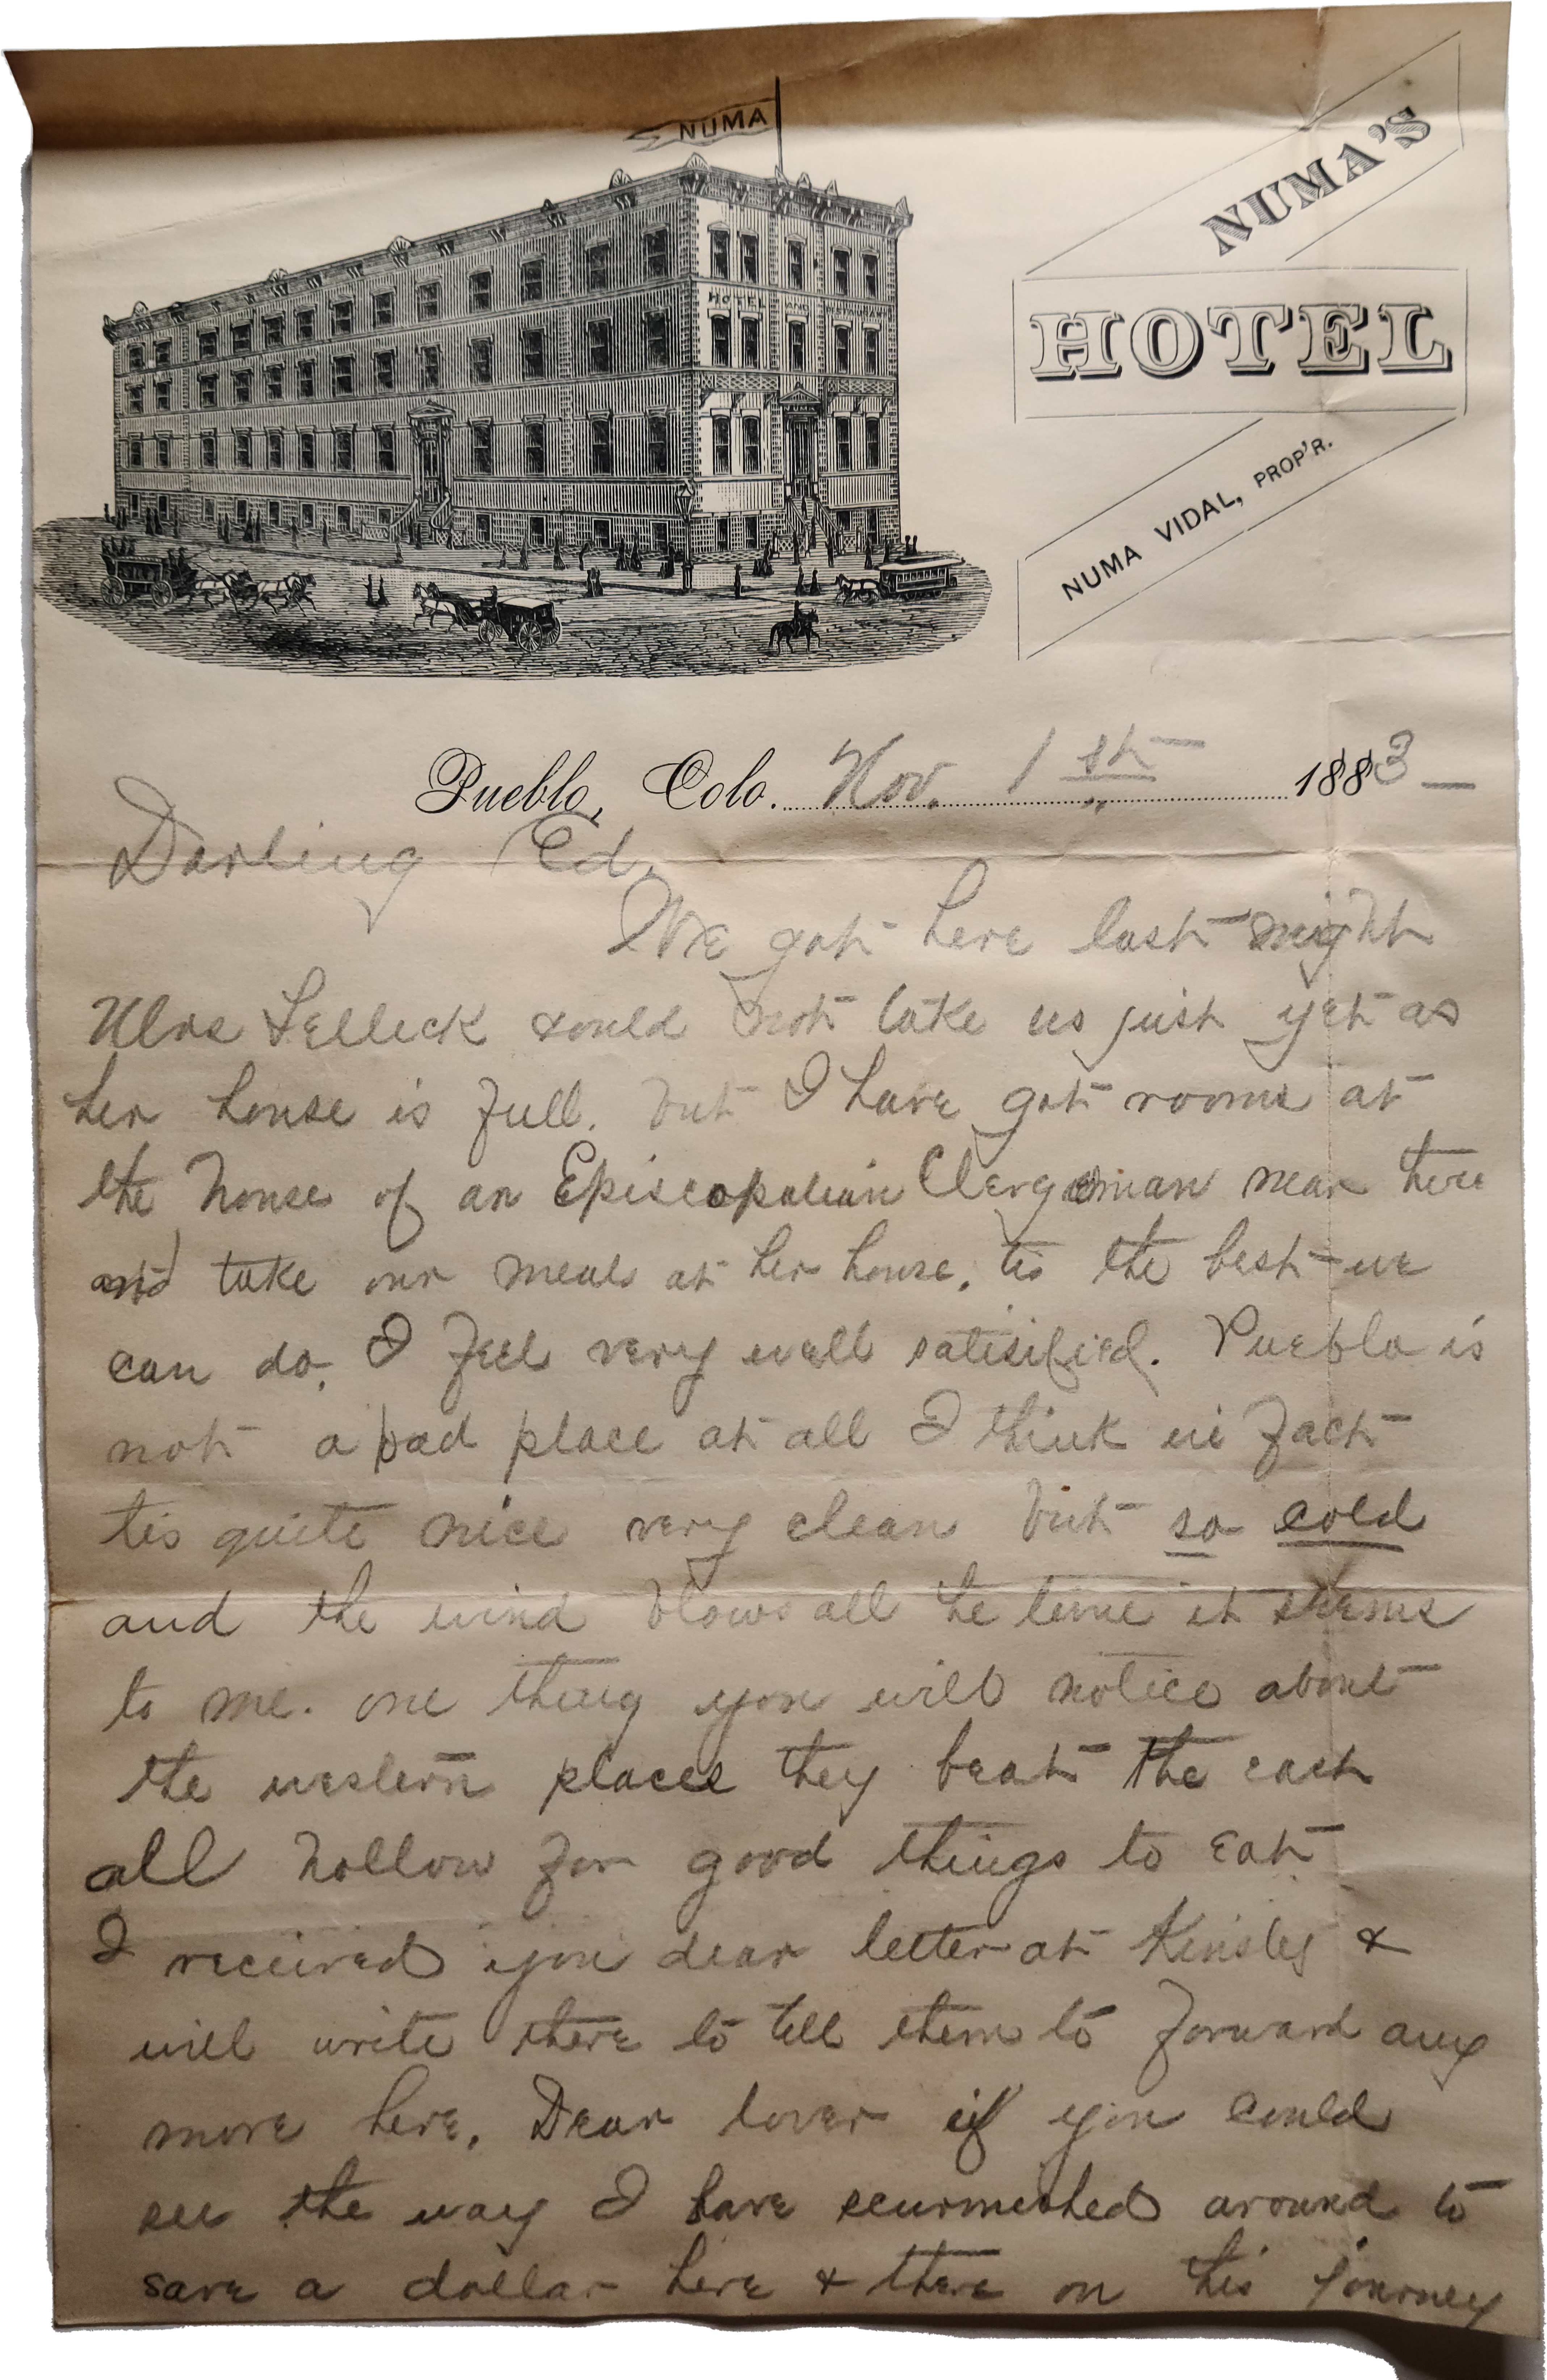 NUMA
HOTEL AND
NUMA'S
HOTEL
NUMA VIDAL, PROP'R.
Pueblo, Colo. Nov. 1st 1883—
Darling Ed,
We got here last night
Mrs Lelleck could not take us just yet as
her house is full. but I have got rooms at
the house of an Episcopalian Clergeman near here
and take our meals at her house, tis the best we
can do. I feel very well satisified. Pueblo is
not a bad place at all I think in fact
tis quite nice very clean but so cold
and the wind blows all he time it seems
to me. one thing you will notice about
the western places they beat the east
all hollow for good things to eat
I received your dear letter at Kinsley &
will write there to tell them to forward any
more here. Dear lover if you could
see the way I have scurmished around to
save a dollar here & there on this journey